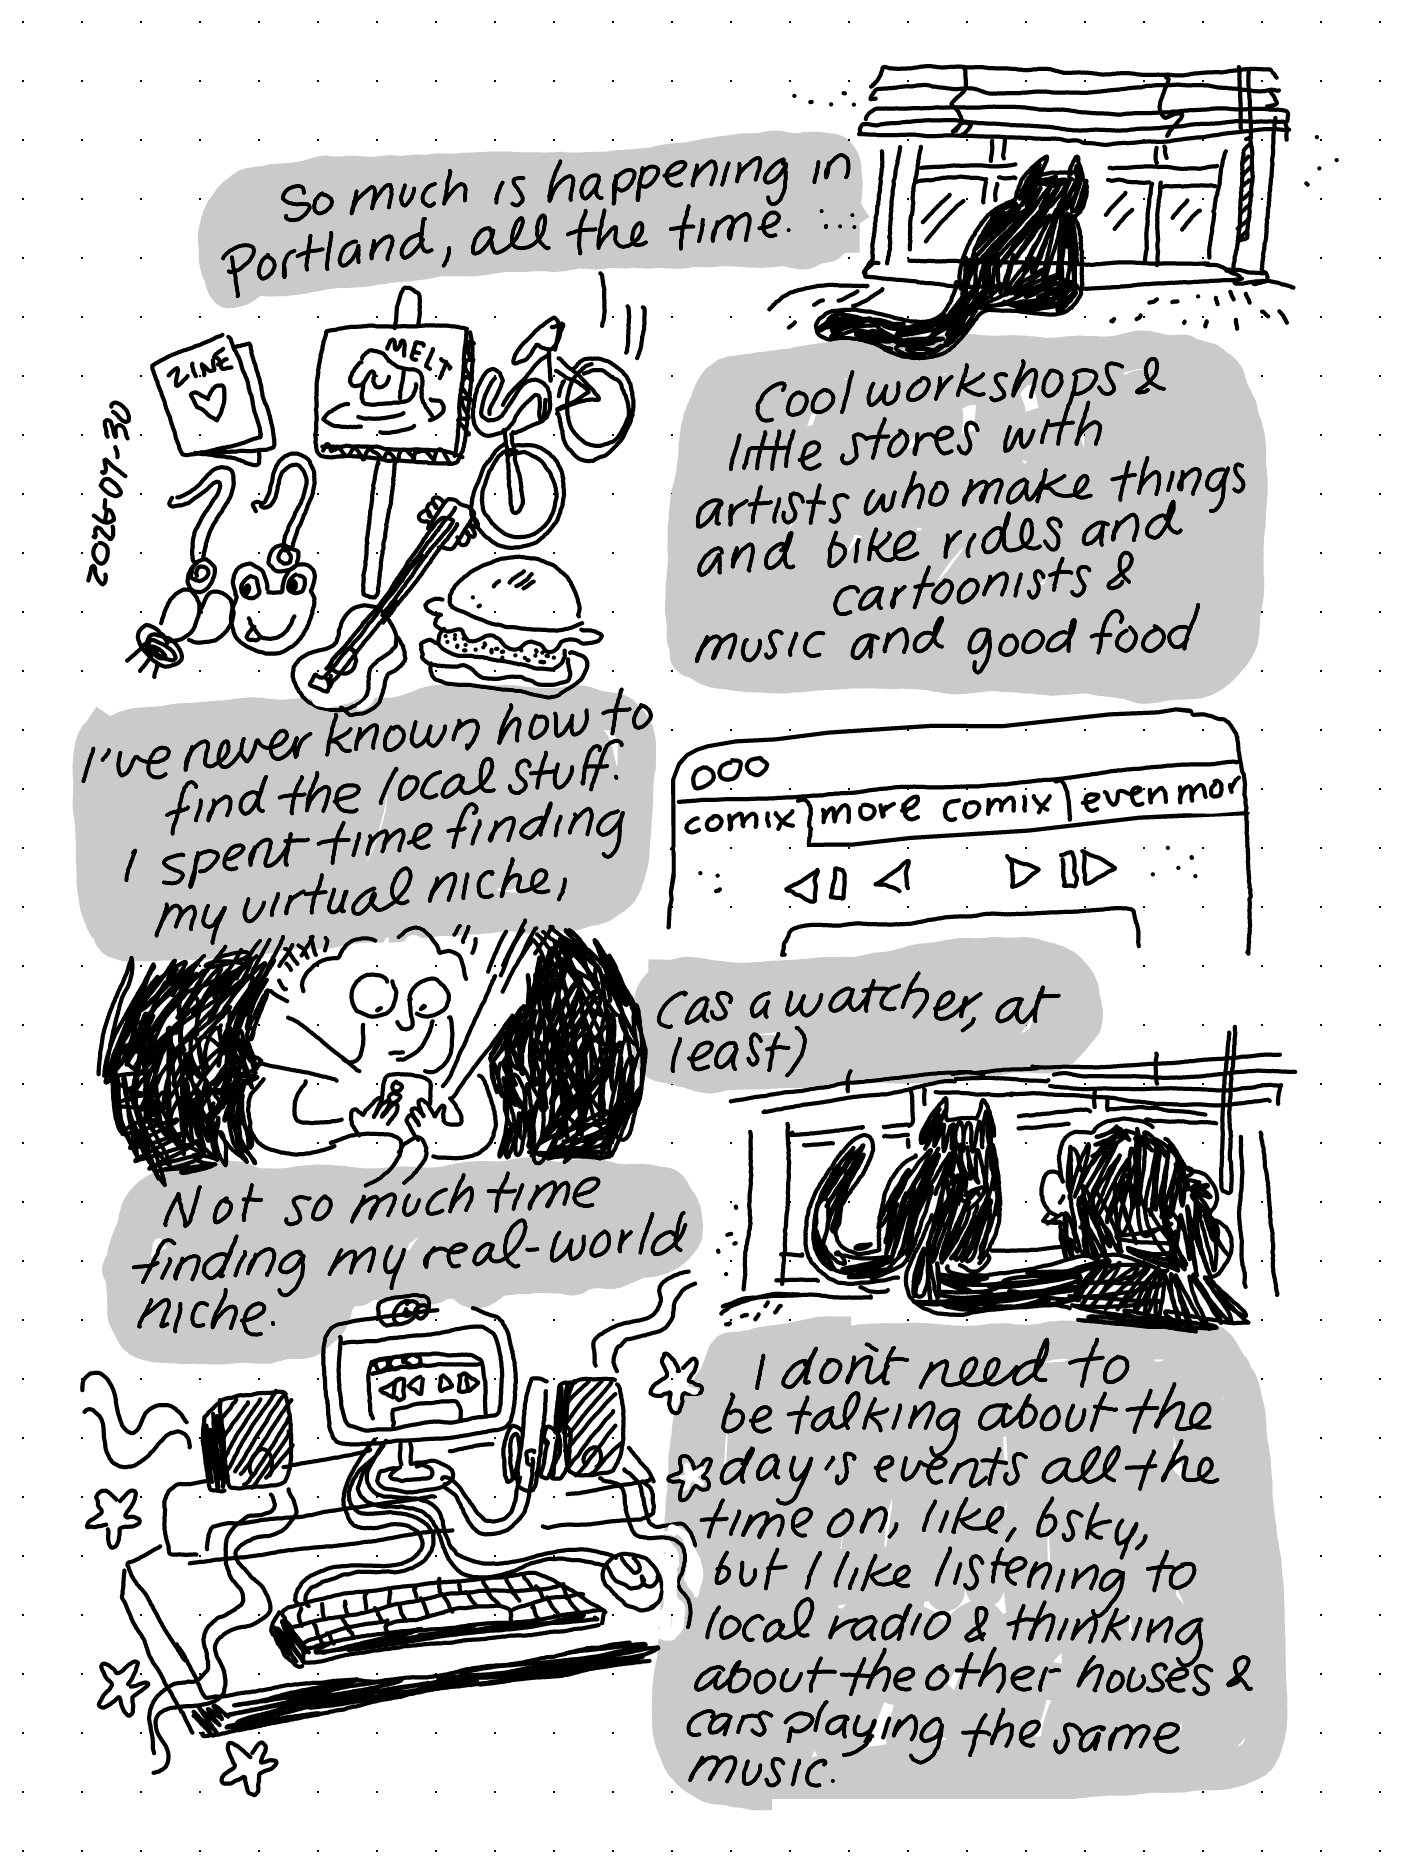 So much is happening in
Portland, all the time.
ZINE
MELT
2026-07-30
Cool workshops &
little stores with
artists who make things
and bike rides and
cartoonists &
music and good food
I've never known how to
find the local stuff.
I spent time finding
my virtual niche,
comix more comix even mor
(as a watcher, at
least)
Not so much time
finding my real-world
niche.
I don't need to
be talking about the
day's events all the
time on, like, bsky,
but I like listening to
local radio & thinking
about the other houses &
cars playing the same
music.